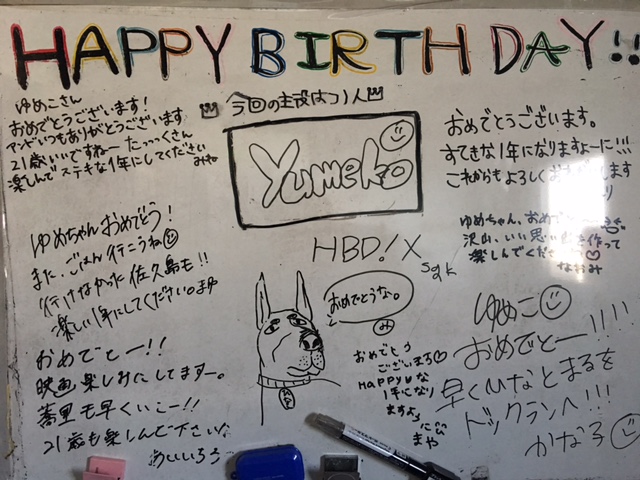 HAPPY BIRTHDAY!!
ゆめこさん
おめでとうございます!
アンビいつもありがとうございます
21歳いいですねー たっっっくさん
楽しんでステキな1年にしてください
みね
今回の主役はコノ人
Yumeko
おめでとうございます。
すてきな1年になりますよーに!!!
これからもよろしく
ます
ゆめちゃん、おめで
沢山、いい思い を作って
楽しんでくだ
なおみ
ゆめちゃんおめでとう!
また、ごはん行こうね
行けなかった佐久島も!!
楽しい1年にしてください。まゆ
HBD!X
sgk
おめでとうな。
み
おめでとう
ございます♡
HAPPYな
1年になり
ますよ
まや
おめでとー!!
映画楽しみにしてますー。
蕎里も早くいこー!!
21歳も楽しんで下さいな
めいいろう
ゆめこ
おめでとー!!!!
早くひなとまるを
ドックランへ!!!
かなる